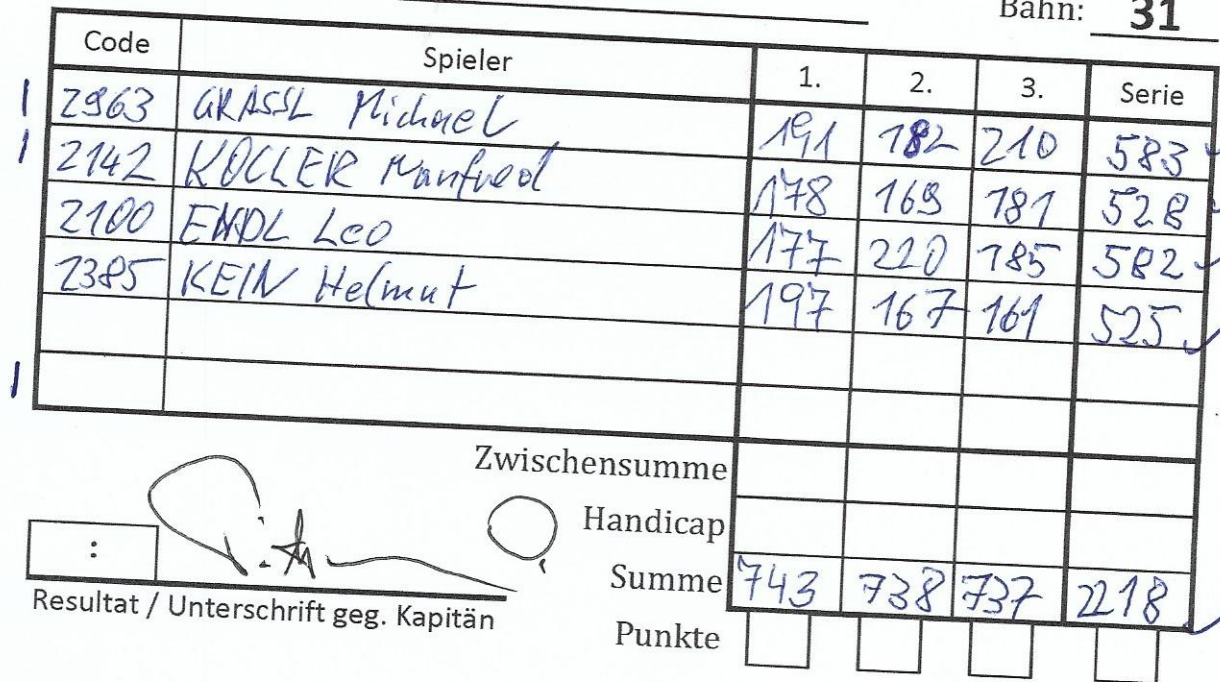 Bahn: 31
Code Spieler 1. 2. 3. Serie
2963 GRASSL Michael 191 182 210 583
2142 KOLLER Manfred 178 169 181 528
2100 ENDL Leo 177 220 185 582
2385 KEIN Helmut 197 167 161 525
Zwischensumme
Handicap
Summe 743 738 737 2218
:
Resultat / Unterschrift geg. Kapitän
Punkte